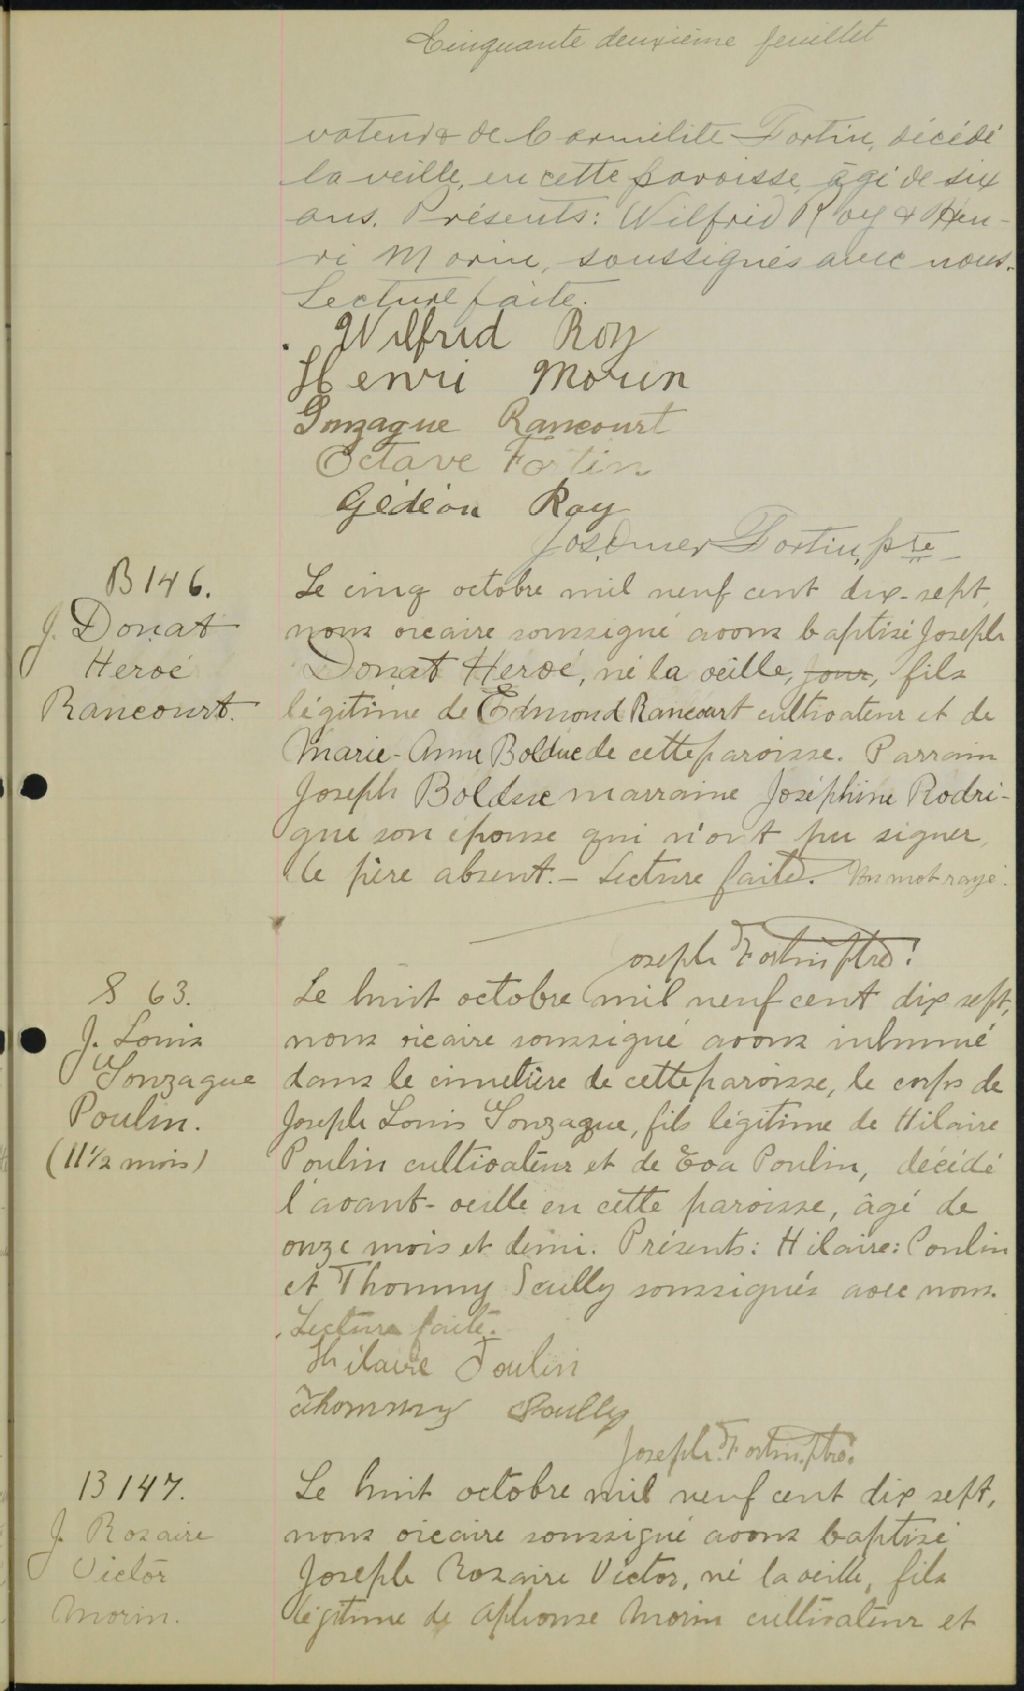 Cinquante deuxième feuillet
vateur & de Carmélite Fortin, décédé
la veille, en cette paroisse, âgé de six
ans. Présents: Wilfrid Roy & Hen-
ri Morin, soussignés avec nous.
Lecture faite.
Wilfrid Roy
Henri Morin
Gonzague Rancourt
Octave Fortin
Gédéon Roy
Jos. Omer Fortin, ptre
B 146.
J. Donat
Hervé
Rancourt.
Le cinq octobre mil neuf cent dix-sept,
nous vicaire soussigné avons baptisé Joseph
Donat Hervé, né la veille, jour, fils
légitime de Edmond Rancourt cultivateur et de
Marie-Anne Bolduc de cette paroisse. Parrain
Joseph Bolduc marraine Joséphine Rodri-
gue son épouse qui n'ont pu signer,
le père absent.- Lecture faite. Un mot rayé.
Joseph Fortin ptre.
S 63.
J. Louis
Gonzague
Poulin.
(11 1/2 mois)
Le huit octobre mil neuf cent dix sept,
nous vicaire soussigné avons inhumé
dans le cimetière de cette paroisse, le corps de
Joseph Louis Gonzague, fils légitime de Hilaire
Poulin cultivateur et de Eva Poulin, décédé
l'avant-veille en cette paroisse, âgé de
onze mois et demi. Présents: Hilaire: Poulin
et Thommy Scully soussignés avec nous.
Lecture faite.
Hilaire Poulin
Thommy Scully
Joseph Fortin, ptre.
B 147.
J. Rosaire
Victor
Morin.
Le huit octobre mil neuf cent dix sept,
nous vicaire soussigné avons baptisé
Joseph Rosaire Victor, né la veille, fils
légitime de Alphonse Morin cultivateur et